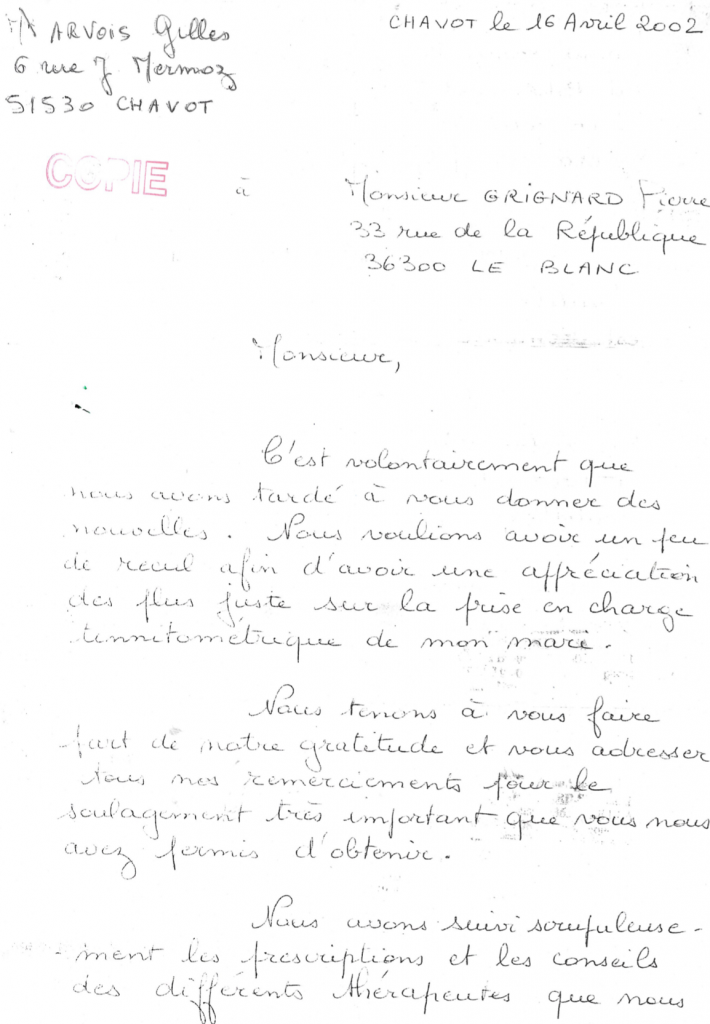 ARVOIS Gilles
6 rue J Mermoz
51530 CHAVOT
CHAVOT le 16 Avril 2002
COPIE
à
Monsieur GRIGNARD Pierre
33 rue de la République
36300 LE BLANC
Monsieur,
C'est volontairement que
nous avons tardé à vous donner des
nouvelles. Nous voulions avoir un peu
de recul afin d'avoir une appréciation
des plus juste sur la prise en charge
tinnitométrique de mon mari.
Nous tenons à vous faire
part de notre gratitude et vous adresser
tous nos remerciements pour le
soulagement très important que vous nous
avez permis d'obtenir.
Nous avons suivi scrupuleuse-
-ment les prescriptions et les conseils
des différents thérapeutes que nous